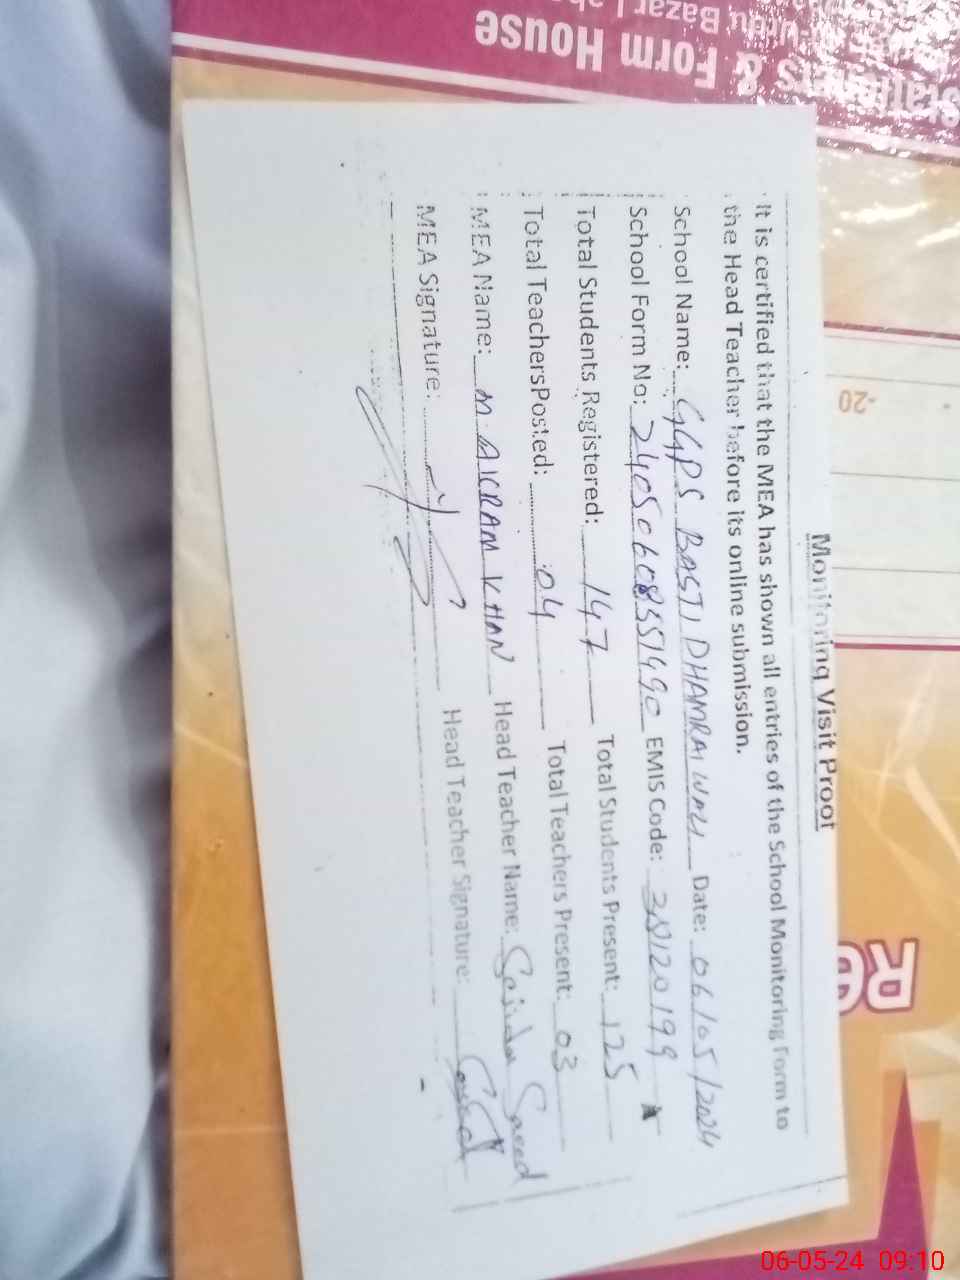 Stationers & Form House
Urdu Bazar
-20
Monitoring Visit Proof
It is certified that the MEA has shown all entries of the School Monitoring Form to
the Head Teacher before its online submission.
School Name: GGPS BASTI DHAMRAI WALI Date: 06/05/2024
School Form No: 24050608351490 EMIS Code: 32120199
Total Students Registered: 147 Total Students Present: 125
Total TeachersPosted: 04 Total Teachers Present: 03
MEA Name: M. AKRAM KHAN Head Teacher Name: Sajida Saeed
MEA Signature: Head Teacher Signature:
06-05-24 09:10